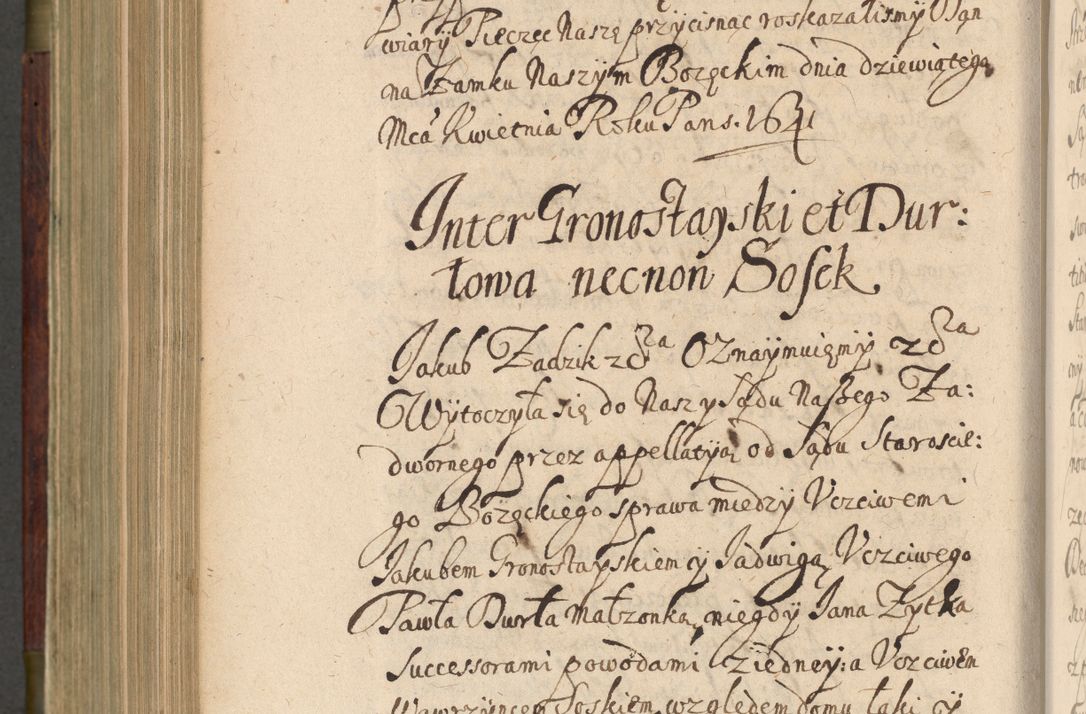 wiary Pieczęc Naszę przycisnąc roskazalismy Dan
na Zamku Naszym Bozęckim dnia dziewiątego
Mcá Kwietnia Roku Pans. 1641
Inter Gronostayski et Dur:
towa necnon Sosek
Jakub Zadzik etc Oznaymuięmy etc
Wytoczyła się do Nas z y Sądu Naszego Za:
dwornego przez appellatyą od Sądu Staroscie:
go Bozęckiego sprawa miedzy Vczciwemi
Jakubem Gronostayskiem y Jadwigą Vczciwego
Pawła Durta Małzonką niegdy Jana Zytka
successorami powodami z iedney: a Vczciwem
Wawrzyncem Soskiem względem domu łąki y